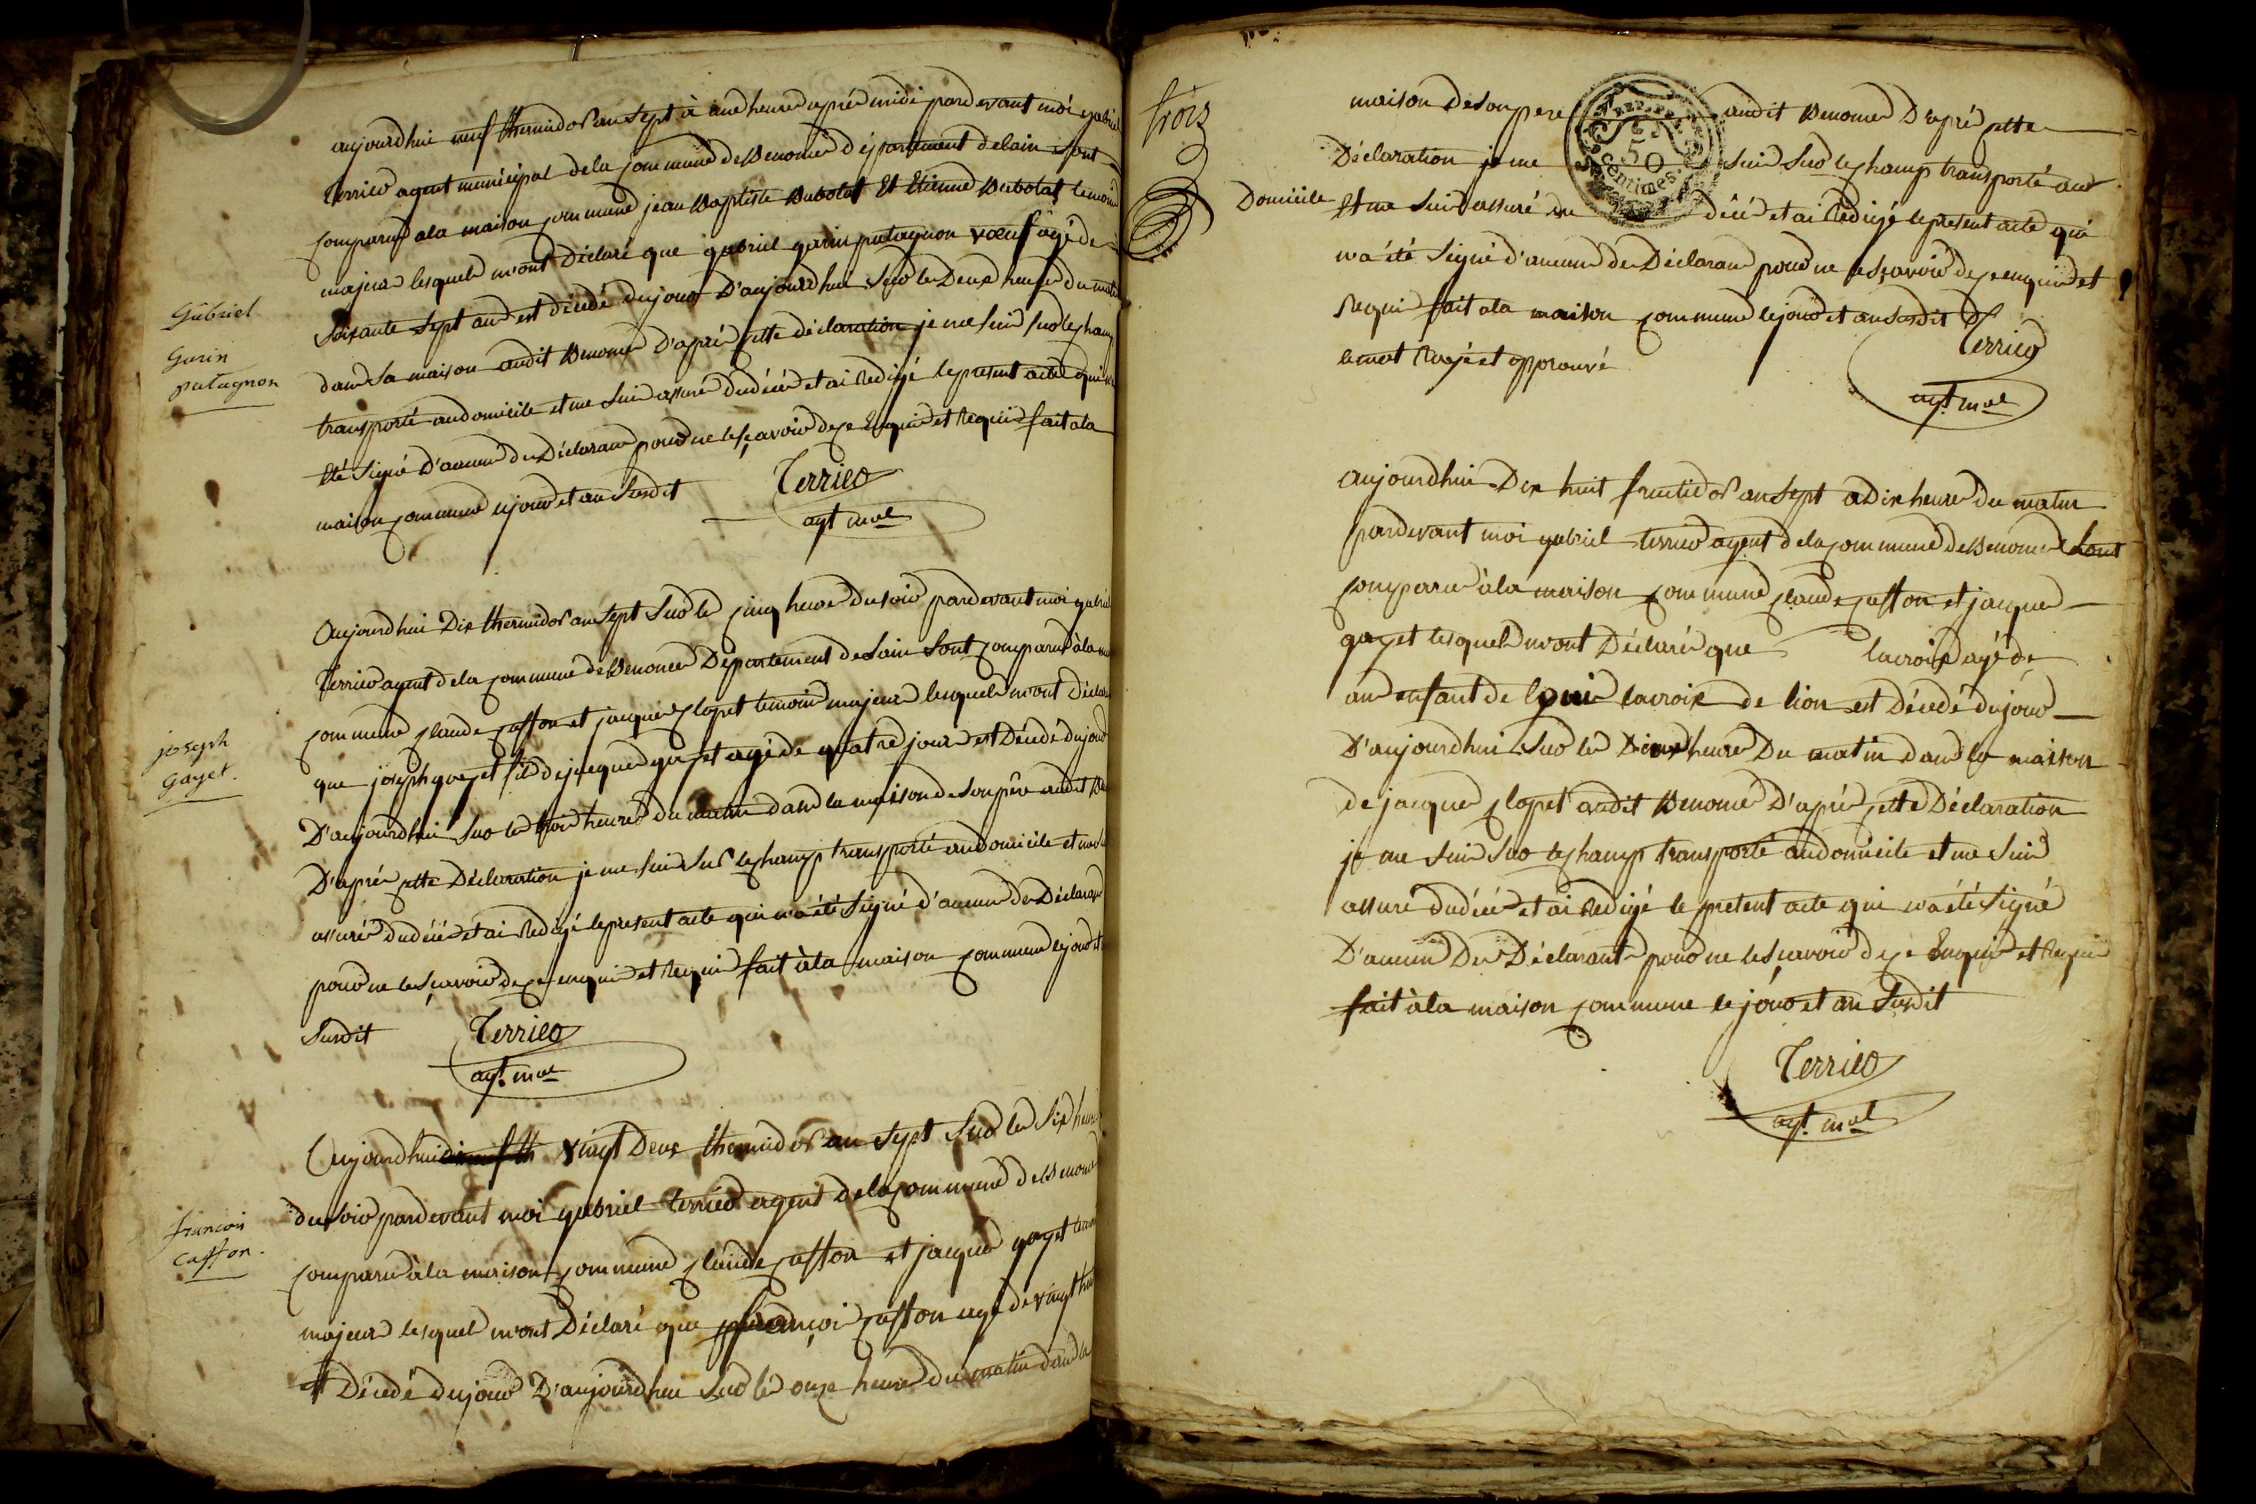 aujourdhui neuf thermidor an sept à une heure après midi pardevant moi gabriel
terrier agent municipal de la commune de Benonce département de lain sont
comparus a la maison commune jean Baptiste Dubolat Et Etienne Dubolat temoins
majeurs lesquels m'ont Déclaré que gabriel garin patagnon vœuf âgé de
Soixante Sept ans est décédé du jour D'aujourd'hui Sur les Deux heures du matin
dans Sa maison audit Benonce D'après cette déclaration je me suis sur le champ
transporté au domicile et me suis assuré du décès et ai redigé le present acte qui n'a
été Signé D'aucun des Déclarans pour ne le sçavoir de ce Enquis et Requis fait a la
maison commune le jour et an Susdit
Terrier
agt mal
Gabriel
Garin
patagnon
Aujourdhui Dix thermidor an Sept Sur les cinq heures du soir pardevant moi gabriel
Terrier agent de la commune de Benonce Département de Lain Sont comparus à la
commune claude casson et jacques clopet temoins majeurs lesquels m'ont déclaré
que joseph gayet fils de jacques gayet agé de quatre jours est Décédé du jour
D'aujourdhui sur les trois heures du matin dans la maison de son père audit
D'après cette Déclaration je me suis Sur le champ transporté au domicile et me
assuré du décès et ai Redigé le present acte qui n'a été Signé d'aucun des Déclarans
pour ne le sçavoir de ce enquis et Requis fait à la maison commune le jour et
Susdit
Terrier
agt. mal
joseph
Gayet.
Aujourdhui vingt Deux thermidor an sept Sur les Six heures
du soir pardevant moi gabriel terrier agent de la commune de Benonce
comparus à la maison commune claude casson et jacques gayet
majeurs lesquels m'ont Déclaré que françois casson agé de vingt huit
est Décédé du jour D'aujourdhui Sur les onze heures du matin dans la
francois
Casson.
trois
maison de son pere audit Benonce D'après cette
Déclaration je me suis Sur le champ transporté au
Domicile Et me suis assuré du décès et ai Redigé le present acte qui
n'a été Signé d'aucun des Déclarans pour ne le sçavoir de ce enquis et
Requis fait a la maison commune le jour et an susdit
le mot Rayé et approuvé
Terrier
agt. mal
REP. FRA.
50
centimes.
aujourdhui Dix huit fructidor an sept a Dix heures du matin
pardevant moi gabriel terrier agent de la commune de Benonce Sont
comparus à la maison commune claude casson et jacques
gayet lesquels m'ont Déclaré que lacroix agé de
an enfant de Louis lacroix de lion est Décédé du jour
D'aujourdhui Sur les heures Du matin dans la maison
de jacques clopet audit Benonce D'après cette Déclaration
je me suis sur le champ transporté au domicile et me suis
assuré du décès et ai Redigé le present acte qui n'a été Signé
D'aucun Des Déclarants pour ne le sçavoir de ce Enquis et Requis
fait à la maison commune le jour et an Susdit
Terrier
agt. mal